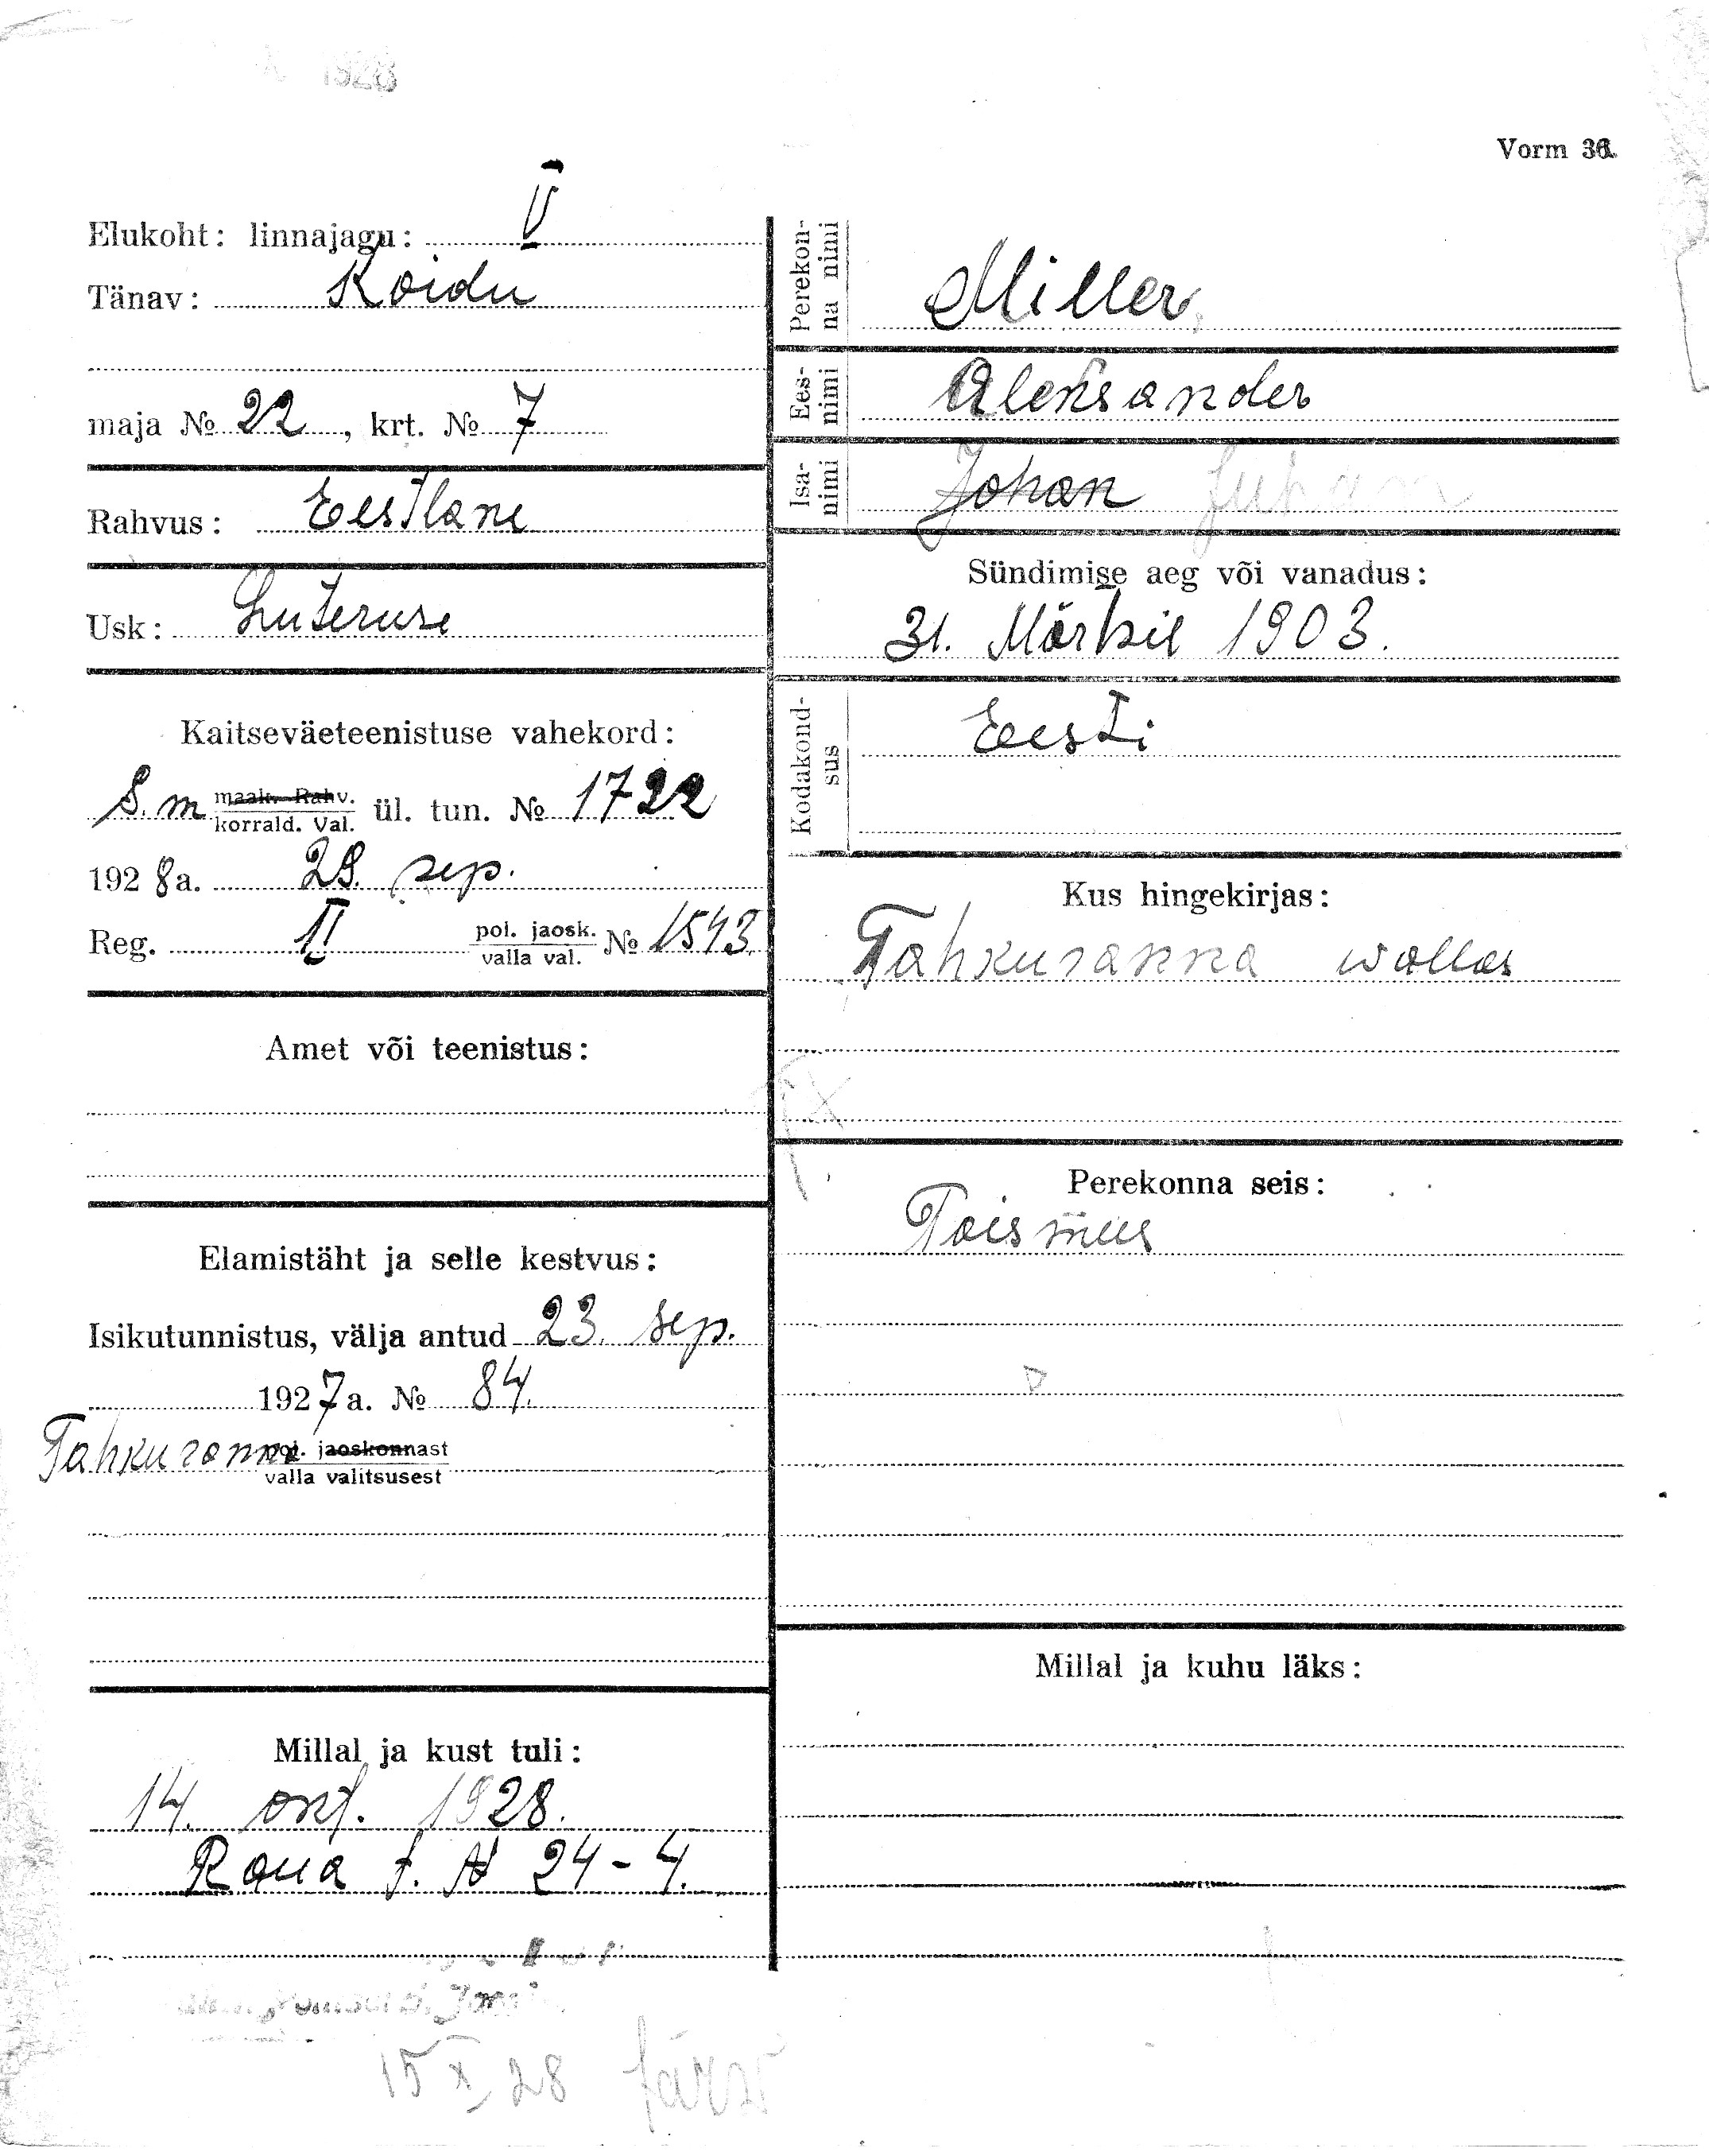 1928
Vorm 36.
Elukoht: linnajagu: V
Tänav: Koidu
maja № 22, krt. № 7
Rahvus: Eestlane
Usk: Luteruse
Kaitseväeteenistuse vahekord:
S. m maak. Rahv. ül. tun. № 1722
korrald. Val.
1928 a. 28. sep.
Reg. II pol. jaosk. № 1543.
valla val.
Amet või teenistus:
Elamistäht ja selle kestvus:
Isikutunnistus, välja antud 23. sep.
1927 a. № 84.
Tahkuranna pol. jaoskonnast
valla valitsusest
Millal ja kust tuli:
14. okt. 1928.
Raua t. № 24-4.
Perekonna nimi
Miller,
Eesnimi
Aleksander
Isanimi
Johan Juhan
Sündimise aeg või vanadus:
31. Märtsil 1903.
Kodakondsus
Eesti
Kus hingekirjas:
Tahkuranna wallas
Perekonna seis:
Poismees
Millal ja kuhu läks:
15 X 28